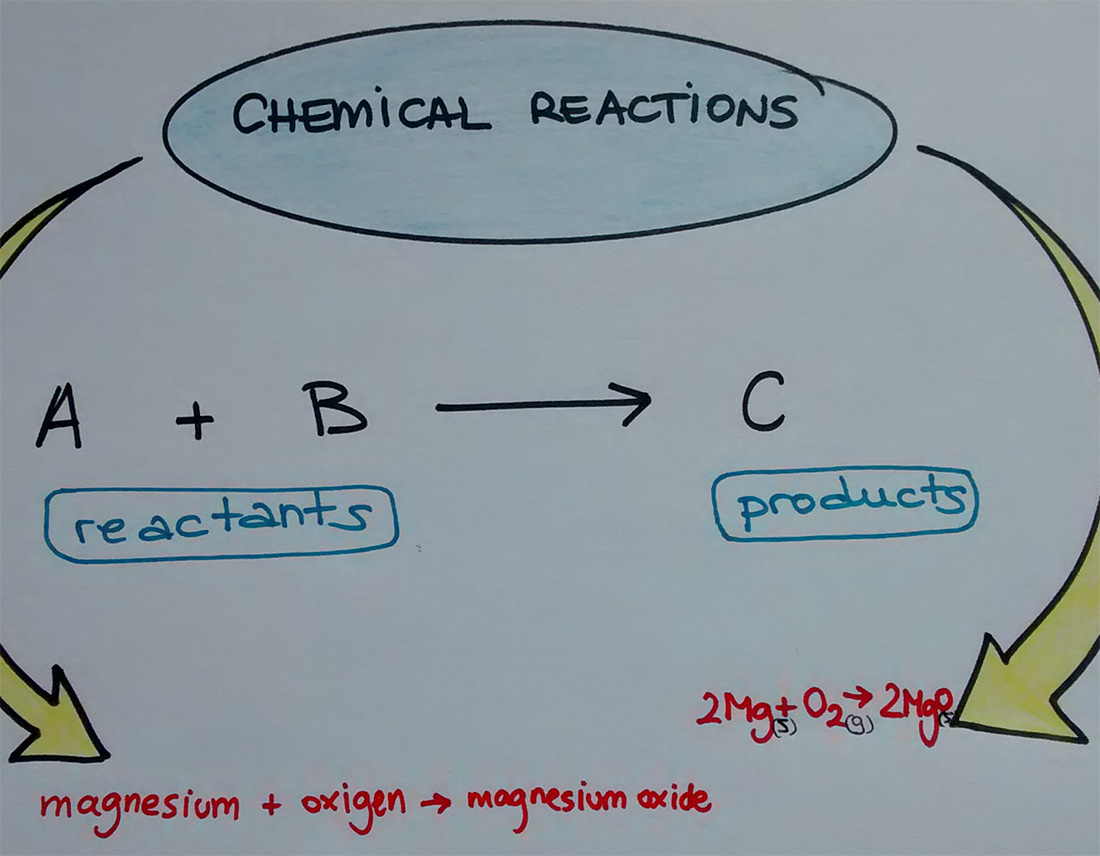 CHEMICAL REACTIONS
A + B → C
reactants products
2Mg(s) + O2(g) → 2MgO(s)
magnesium + oxigen → magnesium oxide